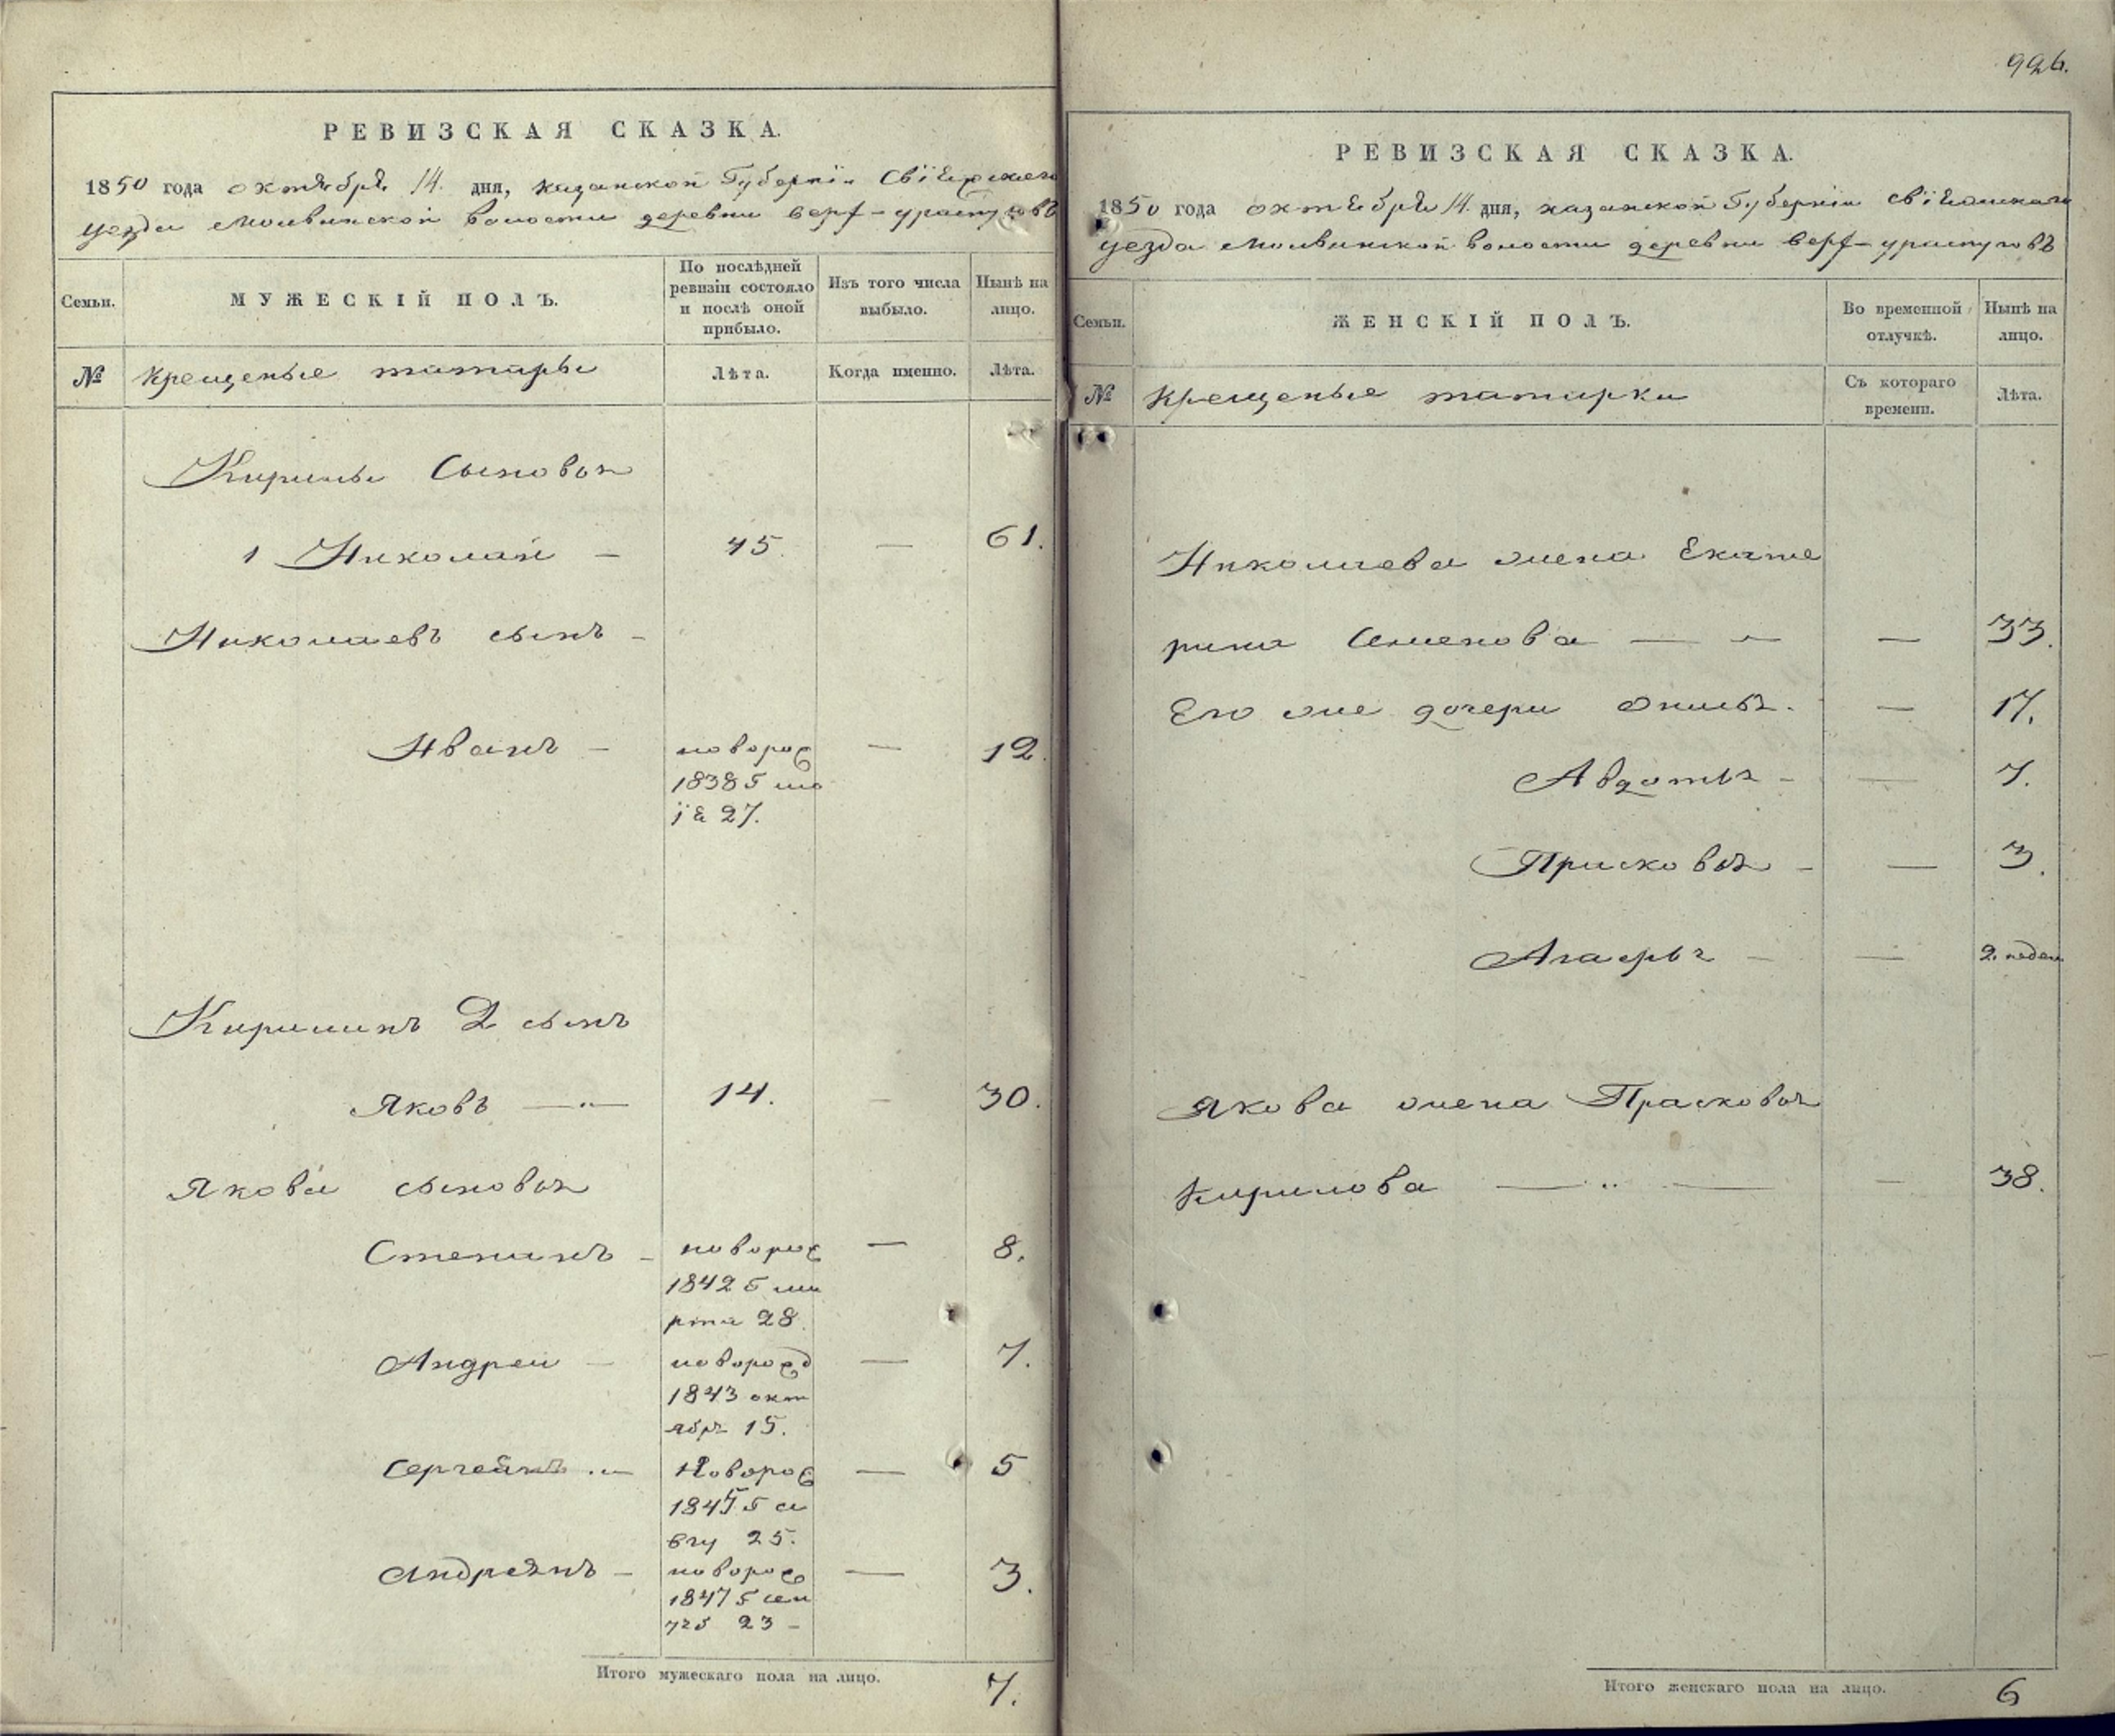 РЕВИЗСКАЯ СКАЗКА.
1850 года октября 14. дня, казанской Губернiи Свiяжскаго
уезда Молвинской волости деревни верх-ураспуговъ
Семьи.
МУЖЕСКIЙ ПОЛЪ.
По послѣдней ревизiи состояло и послѣ оной прибыло.
Изъ того числа выбыло.
Нынѣ на лицо.
№
крещеные татары
Лѣта.
Когда именно.
Лѣта.
Кирилы Сыновья
1 Николай — 45. — 61.
Николаевъ сынъ -
Иванъ — новорож — 12.
1838
27.
Кирилинъ 2 сынъ
Яковъ — „ — 14. — 30.
Якова сыновья
Степанъ - новорож — 8.
1842 г ма
рта 28.
Андреи — новорожд — 7.
1843 окт
ябр 15.
Сергей — Новорож — 5
1845 г а
вгу 25.
Андреянъ - новорож — 3.
1847 г сен
23 -
Итого мужескаго пола на лицо. 7.
996.
РЕВИЗСКАЯ СКАЗКА.
1850 года октября 14. дня, казанской Губернiи свiяжскаго
уезда Молвинской волости деревни верх-ураспуговъ
Семьи.
ЖЕНСКIЙ ПОЛЪ.
Во временной отлучкѣ.
Нынѣ на лицо.
№
крещеные татарки
Съ котораго времени.
Лѣта.
Николаева жена Екате
рина Семенова — — 33.
Его же дочери — 17.
Авдотья - — 7.
Прасковья - — 3.
— — 2. недел
Якова жена Прасковья
Кирилова — „ — — 38.
Итого женскаго пола на лицо. 6